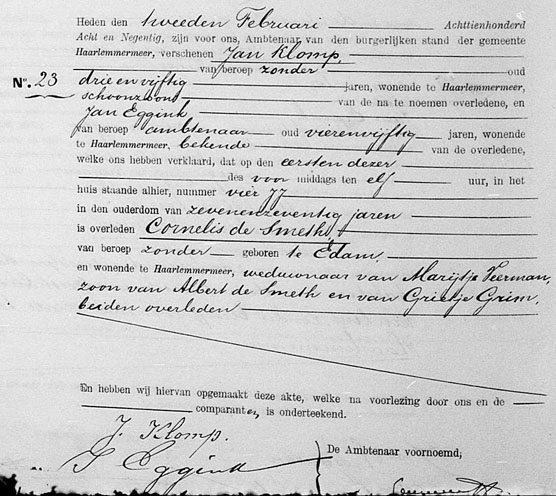 Heden den tweeden Februari Achttienhonderd
Acht en Negentig, zijn voor ons, Ambtenaar van den burgerlijken stand der gemeente
Haarlemmermeer, verschenen Jan Klomp,
van beroep zonder oud
No. 23 drie en vijftig jaren, wonende te Haarlemmermeer,
schoonzoons van de na te noemen overledene, en
Jan Eggink
van beroep ambtenaar oud vierenvijftig jaren, wonende
te Haarlemmermeer, bekende van de overledene,
welke ons hebben verklaard, dat op den eersten dezer
des voor middags ten elf uur, in het
huis staande alhier, nummer vier JJ
in den ouderdom van zevenenzeventig jaren
is overleden Cornelis de Smeth,
van beroep zonder geboren te Edam,
en wonende te Haarlemmermeer, weduwnaar van Marijtje Veerman,
zoon van Albert de Smeth en van Grietje Grim,
beiden overleden
En hebben wij hiervan opgemaakt deze akte, welke na voorlezing door ons en de
comparanten, is onderteekend.
J. Klomp.
De Ambtenaar voornoemd,
J Eggink